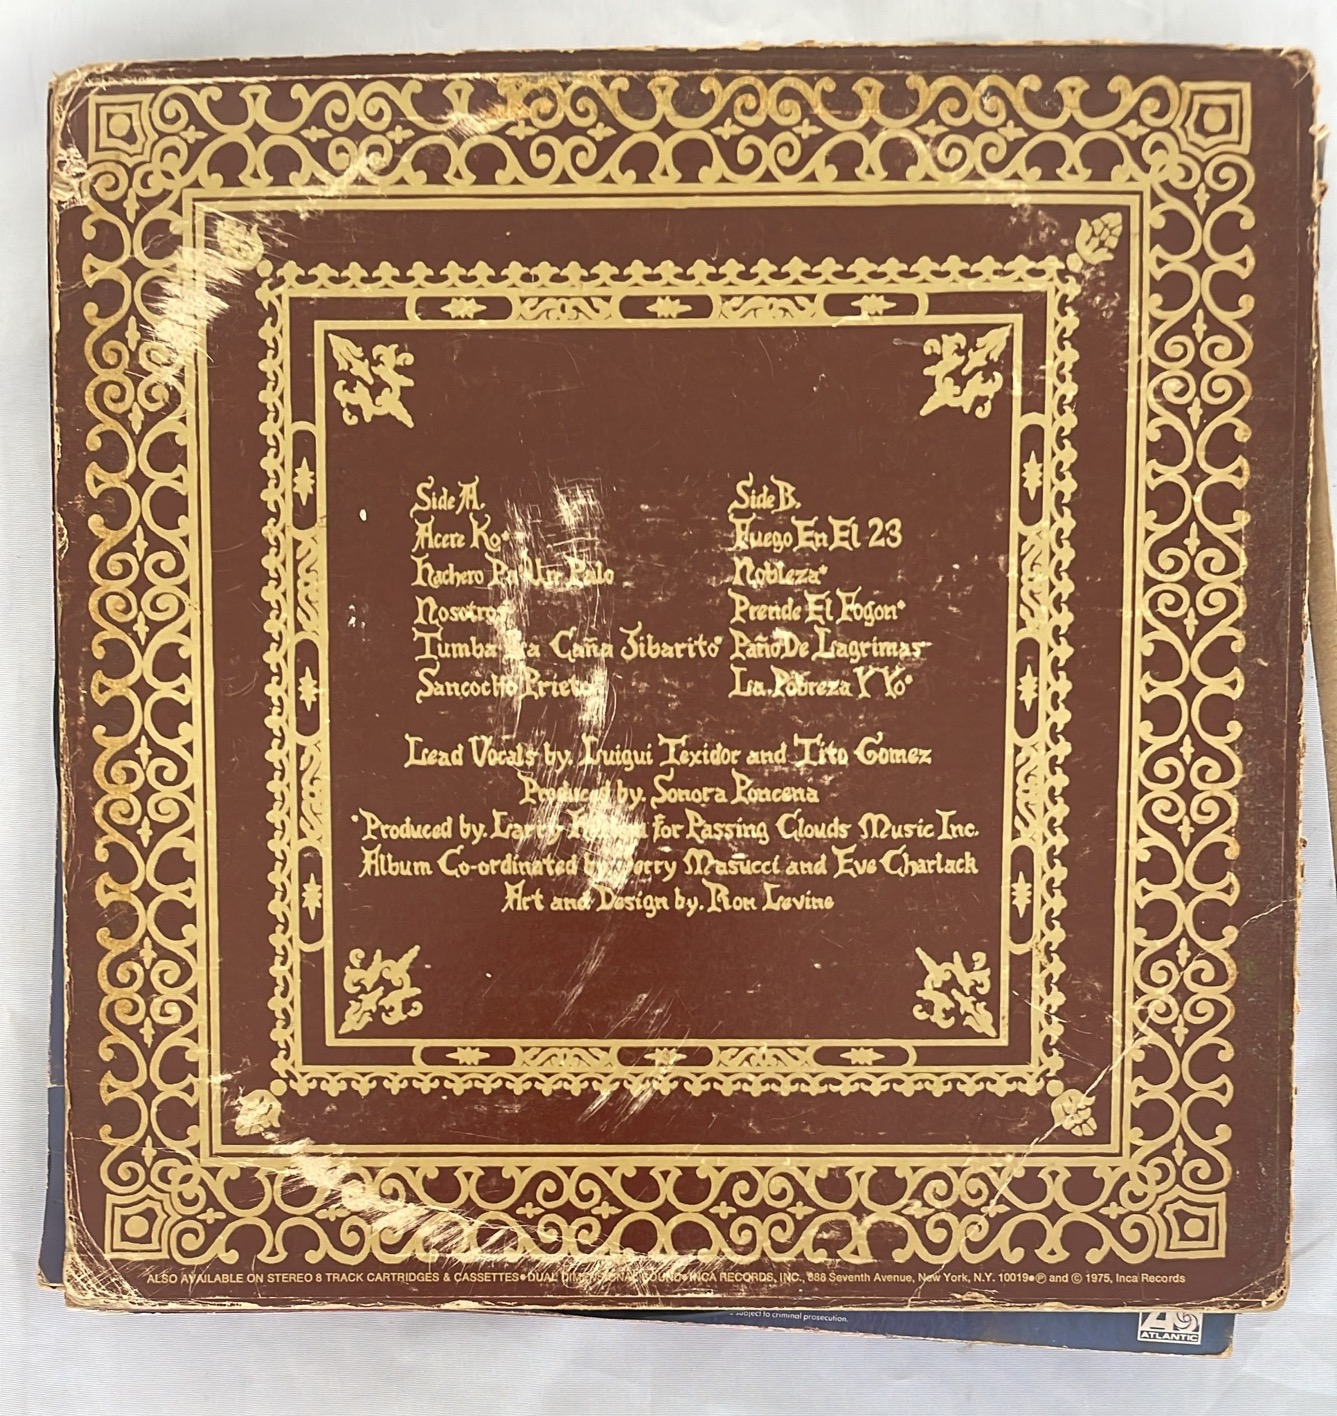 Side A.
Acere Ko*
Hachero Pa Un Palo
Nosotros*
Tumba La Caña Jibarito*
Sancocho Prieto
Side B.
Fuego En El 23
Nobleza*
Prende El Fogon*
Paño De Lagrimas
La Pobreza Y Yo*
Lead Vocals by. Luigui Texidor and Tito Gomez
Produced by. Sonora Poncena
*Produced by. Larry for Passing Clouds Music Inc.
Album Co-ordinated by Jerry Masucci and Eve Charlack
Art and Design by. Ron Levine
ALSO AVAILABLE ON STEREO 8 TRACK CARTRIDGES & CASSETTES●DUAL DIMENSIONAL SOUND●INCA RECORDS, INC., 888 Seventh Avenue, New York, N.Y. 10019●Ⓟ and © 1975, Inca Records
subject to criminal prosecution.
ATLANTIC